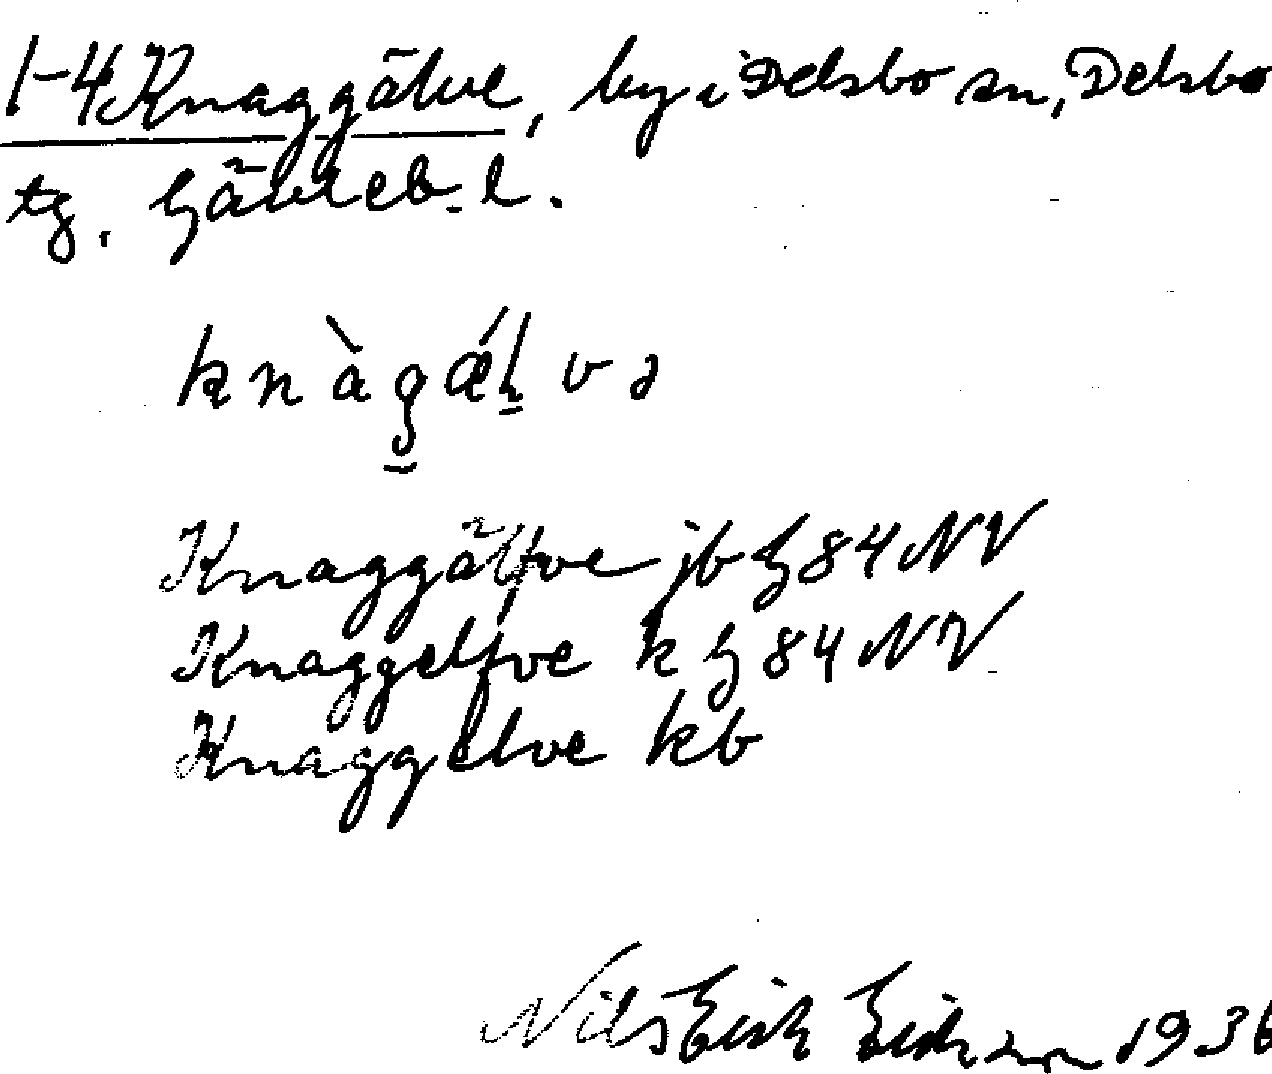 1-4 Knaggälve, by i Delsbo sn, Delsbo
tg. Gävleb. l.
knàgǽlvə
Knaggälfve jb G 84 NV
Knaggelfve k G 84 NV
Knaggelve kb
Nils Erik Eriksson 1936